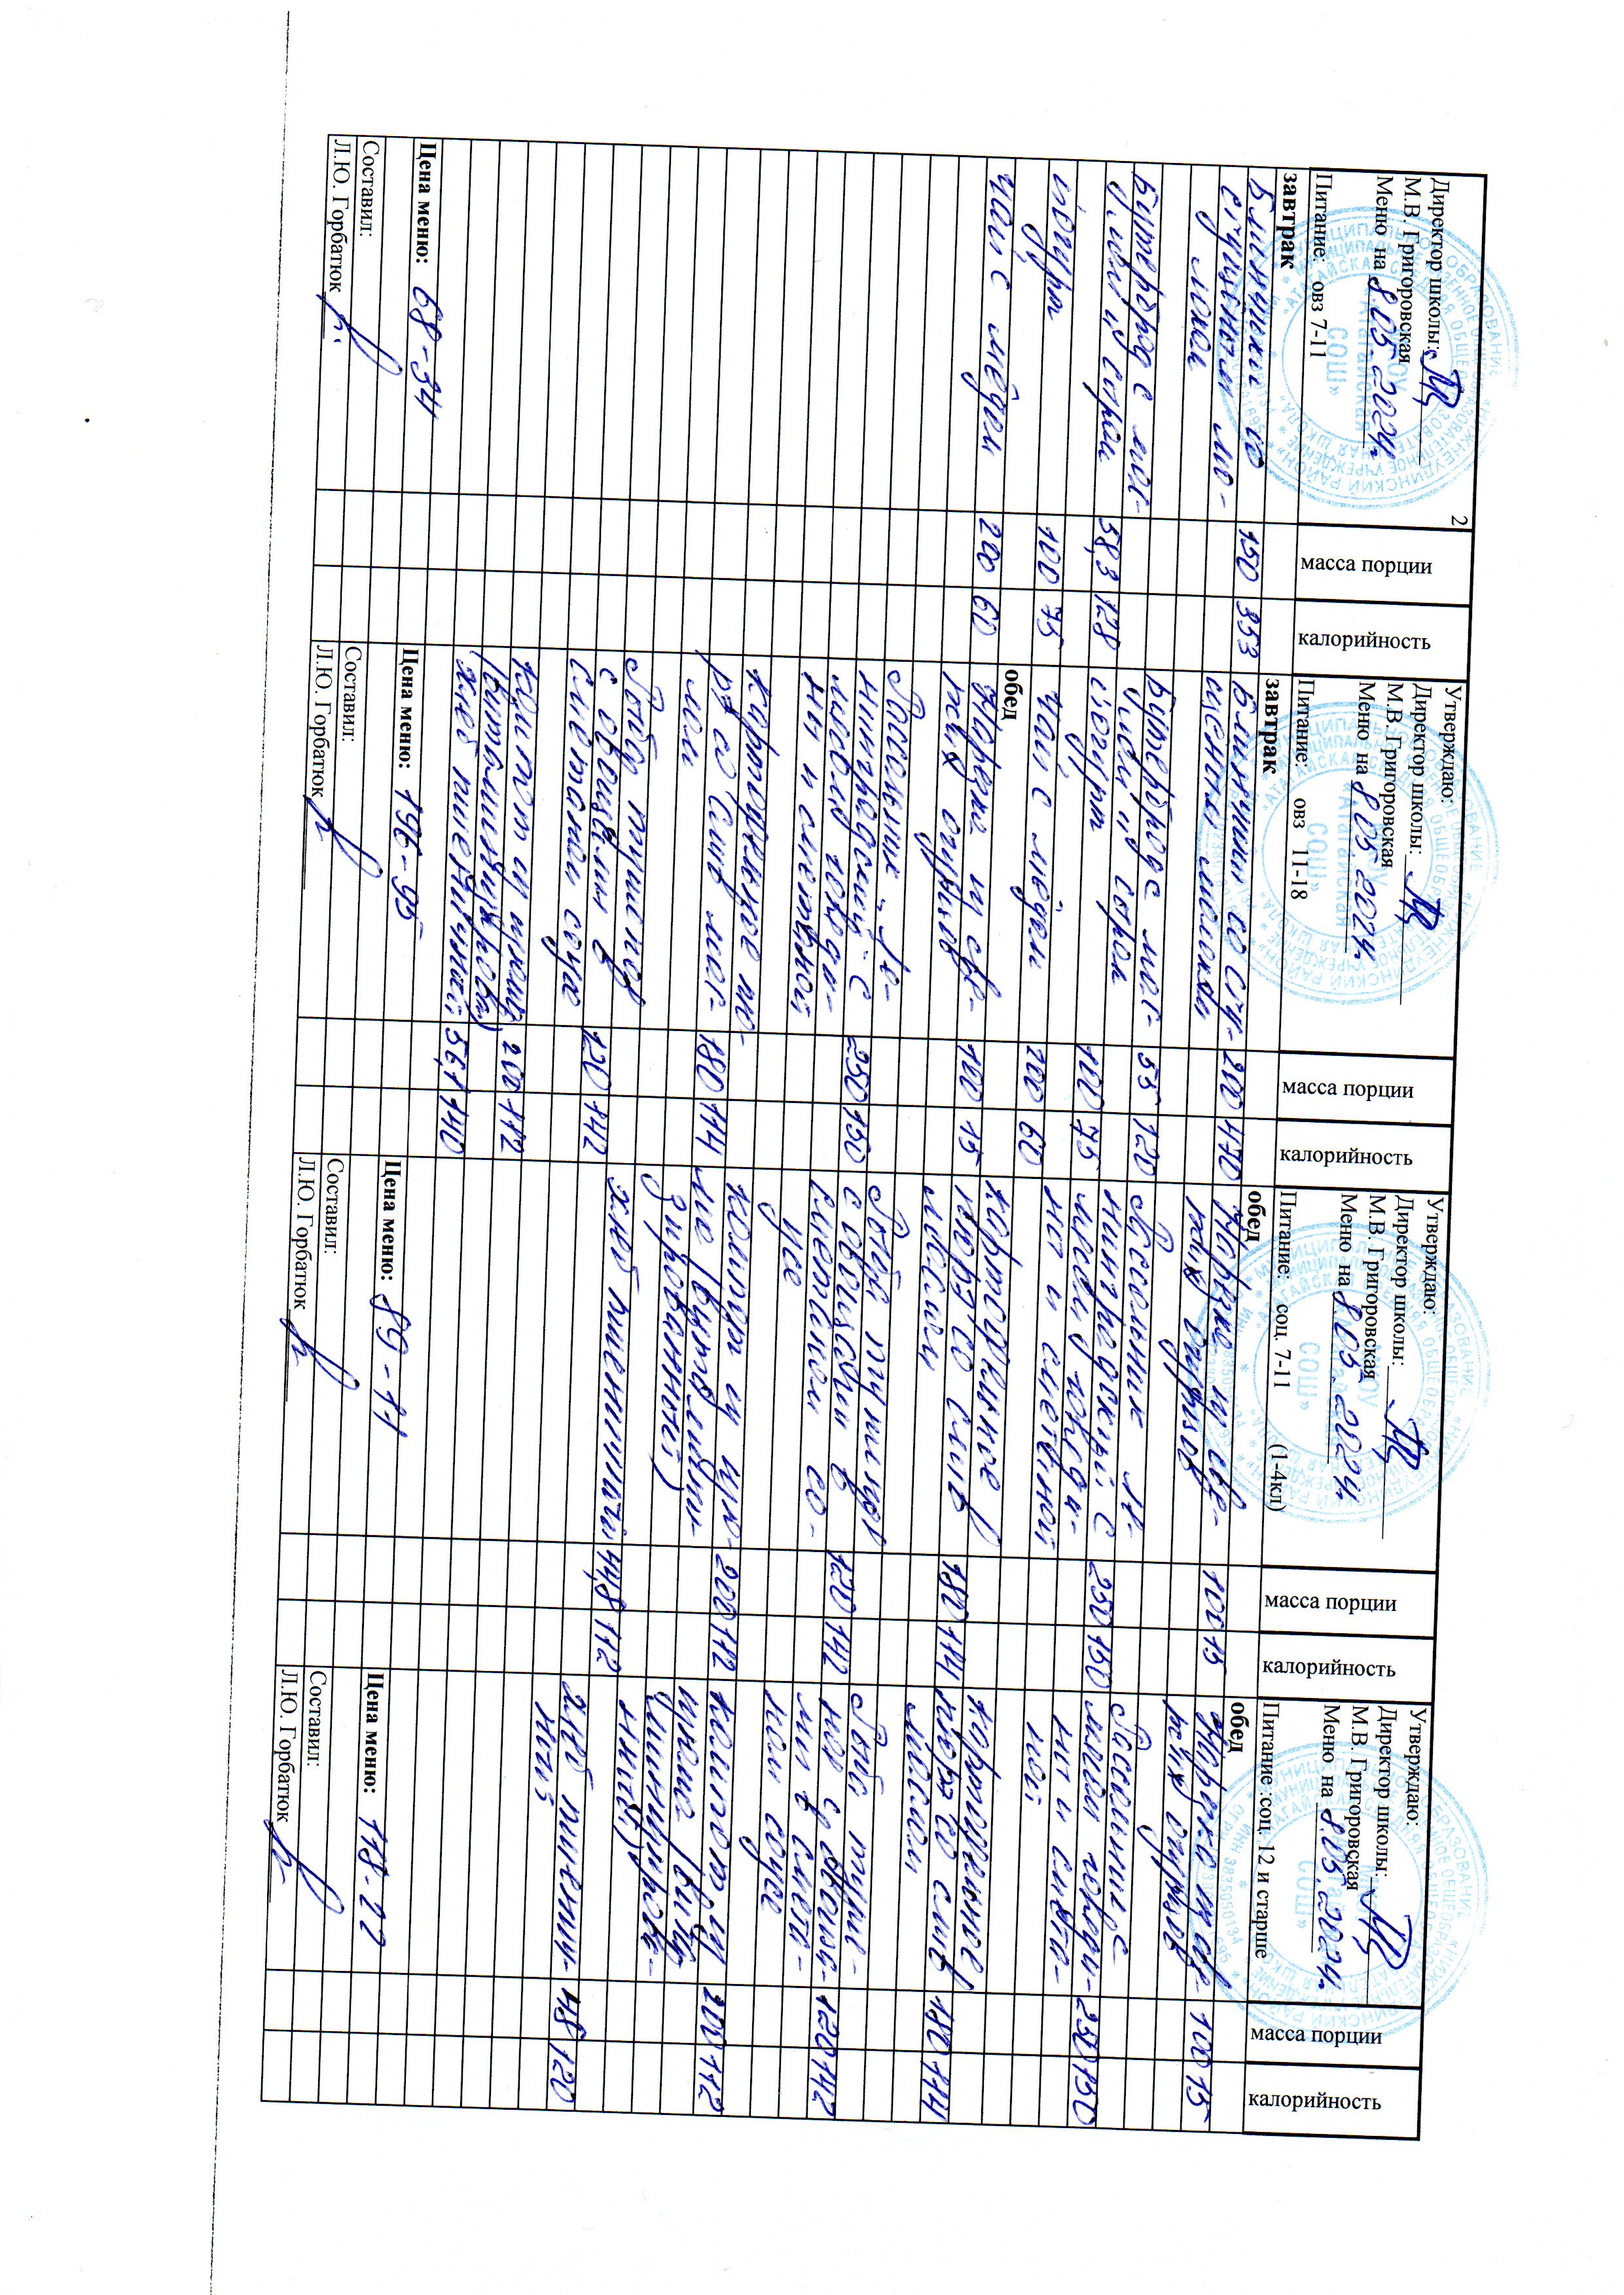 2
Директор школы:
М.В. Григоровская
Меню на 8.05.2024г.
Питание: овз 7-11
масса порции
калорийность
завтрак
Блинчики со
сгущённым мо- 150 353
локом
Бутерброд с мас-
лом и сыром 58,3 128
йогурт 100 75
чай с мёдом 200 60
Цена меню: 68-34
Составил:
Л.Ю. Горбатюк
Утверждаю:
Директор школы:
М.В. Григоровская
Меню на 8.05.2024г.
Питание: овз 11-18
масса порции
калорийность
завтрак
Блинчики со сгу- 200 470
щенным молоком
Бутерброд с мас- 55 120
лом и сыром
йогурт 100 75
чай с мёдом 200 60
обед
Нарезка из све-
жих огурцов 100 15
Рассольник "Ле-
нинградский" с
мясом говяди- 250 150
ны и сметаной
Картофельное пю-
ре со слив. мас- 180 144
лом
Рыба тушёная
с овощами в
сметанном соусе 120 142
Компот из урюка
(витаминизиров.) 200 112
хлеб пшеничный 56,1 140
Цена меню: 196-95
Составил:
Л.Ю. Горбатюк
Утверждаю:
Директор школы:
М.В. Григоровская
Меню на 8.05.2024г.
Питание: соц. 7-11 (1-4кл)
масса порции
калорийность
обед
Нарезка из све-
жих огурцов 100 15
Рассольник Ле-
нинградский с
мясом говяди- 250 150
ны и сметаной
Картофельное
пюре со слив 180 144
маслом
Рыба тушеная
с овощами в
сметанном со- 120 142
усе
Компот из урю-
ка (витамини- 200 112
зированный)
хлеб пшеничный 44,8 112
Цена меню: 89-11
Составил:
Л.Ю. Горбатюк
Утверждаю:
Директор школы:
М.В. Григоровская
Меню на 8.05.2024г.
Питание :соц. 12 и старше
масса порции
калорийность
обед
Нарезка из све-
жих огурцов 100 15
Рассольник с
мясом говяди- 250 150
ны и смета-
ной
Картофельное
пюре со слив 180 144
маслом
Рыба туше-
ная с овоща-
ми в смета- 120 142
ном соусе
Компот из
урюка 200 112
хлеб пшенич- 48 120
ный
Цена меню: 118-22
Составил:
Л.Ю. Горбатюк